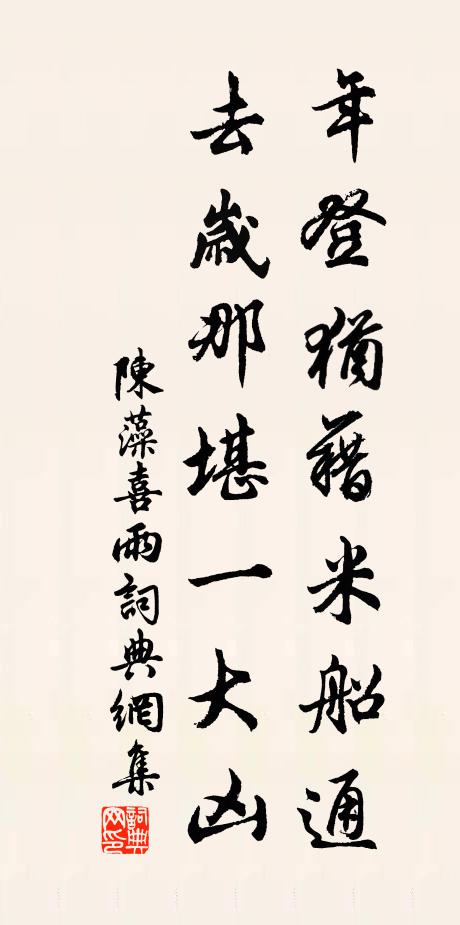 年登猶藉米船通
去歲那堪一大凶
陳藻喜雨詞典網集
詞典網印